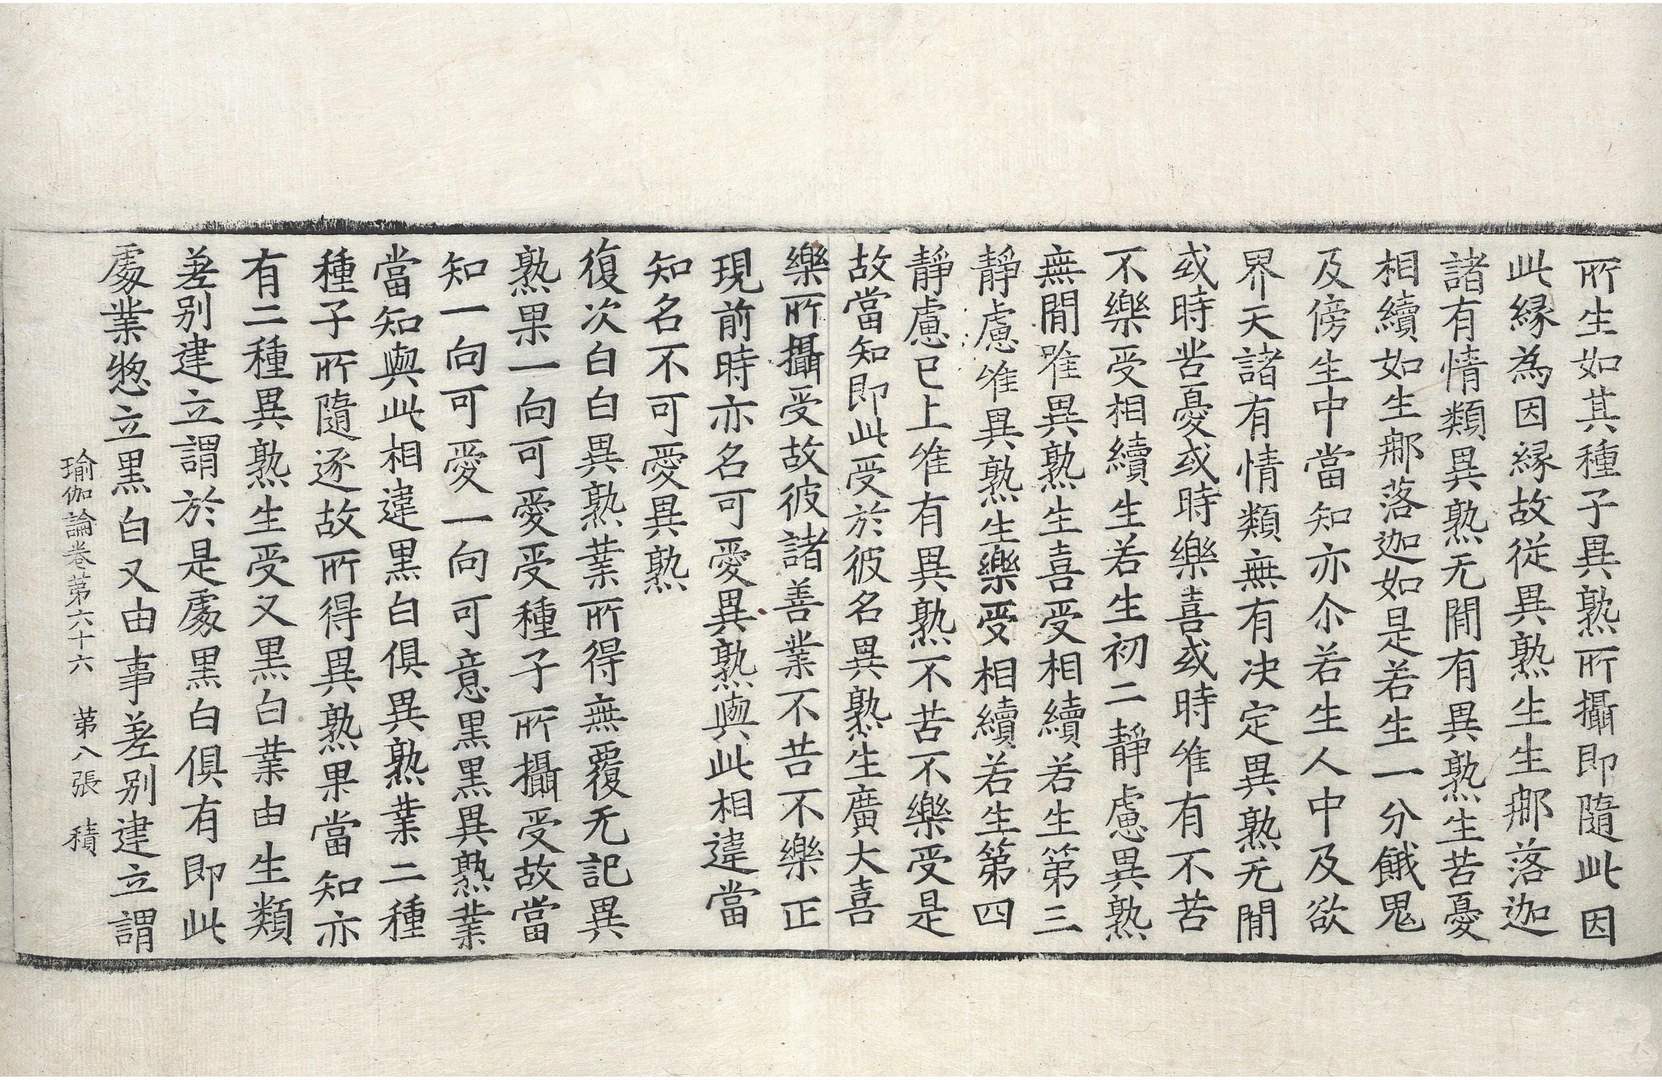 所生如其種子異熟所攝即隨此因
此縁為因縁故從異熟生生那落迦
諸有情類異熟无閒有異熟生苦憂
相續如生那落迦如是若生一分餓鬼
及傍生中當知亦尒若生人中及欲
界天諸有情類無有决定異熟无閒
或時苦憂或時樂喜或時唯有不苦
不樂受相續生若生初二靜慮異熟
無閒唯異熟生喜受相續若生第三
靜慮唯異熟生樂受相續若生第四
靜慮已上唯有異熟不苦不樂受是
故當知即此受於彼名異熟生廣大喜
樂所攝受故彼諸善業不苦不樂正
現前時亦名可愛異熟與此相違當
知名不可愛異熟
復次白白異熟業所得無覆无記異
熟果一向可愛受種子所攝受故當
知一向可愛一向可意黑黑異熟業
當知與此相違黑白俱異熟業二種
種子所隨逐故所得異熟果當知亦
有二種異熟生受又黑白業由生類
差別建立謂於是處黑白俱有即此
處業惣立黑白又由事差別建立謂
瑜伽論卷第六十六　第八張　積